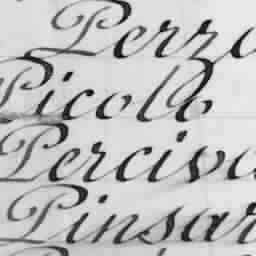 Perzo
Picolo
Perciva
Pinsar